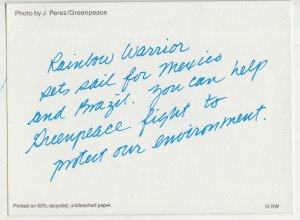 Photo by J. Perez/Greenpeace
Rainbow Warrior
sets sail for Mexico
and Brazil. You can help
Greenpeace fight to
protect our environment.
Printed on 50% recycled, unbleached paper.
12 RW